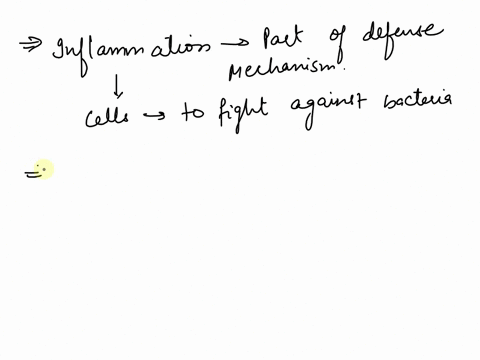 ⇒ Inflammation → Part of defense
Mechanism.
↓
Cells → to fight against bacteria
=